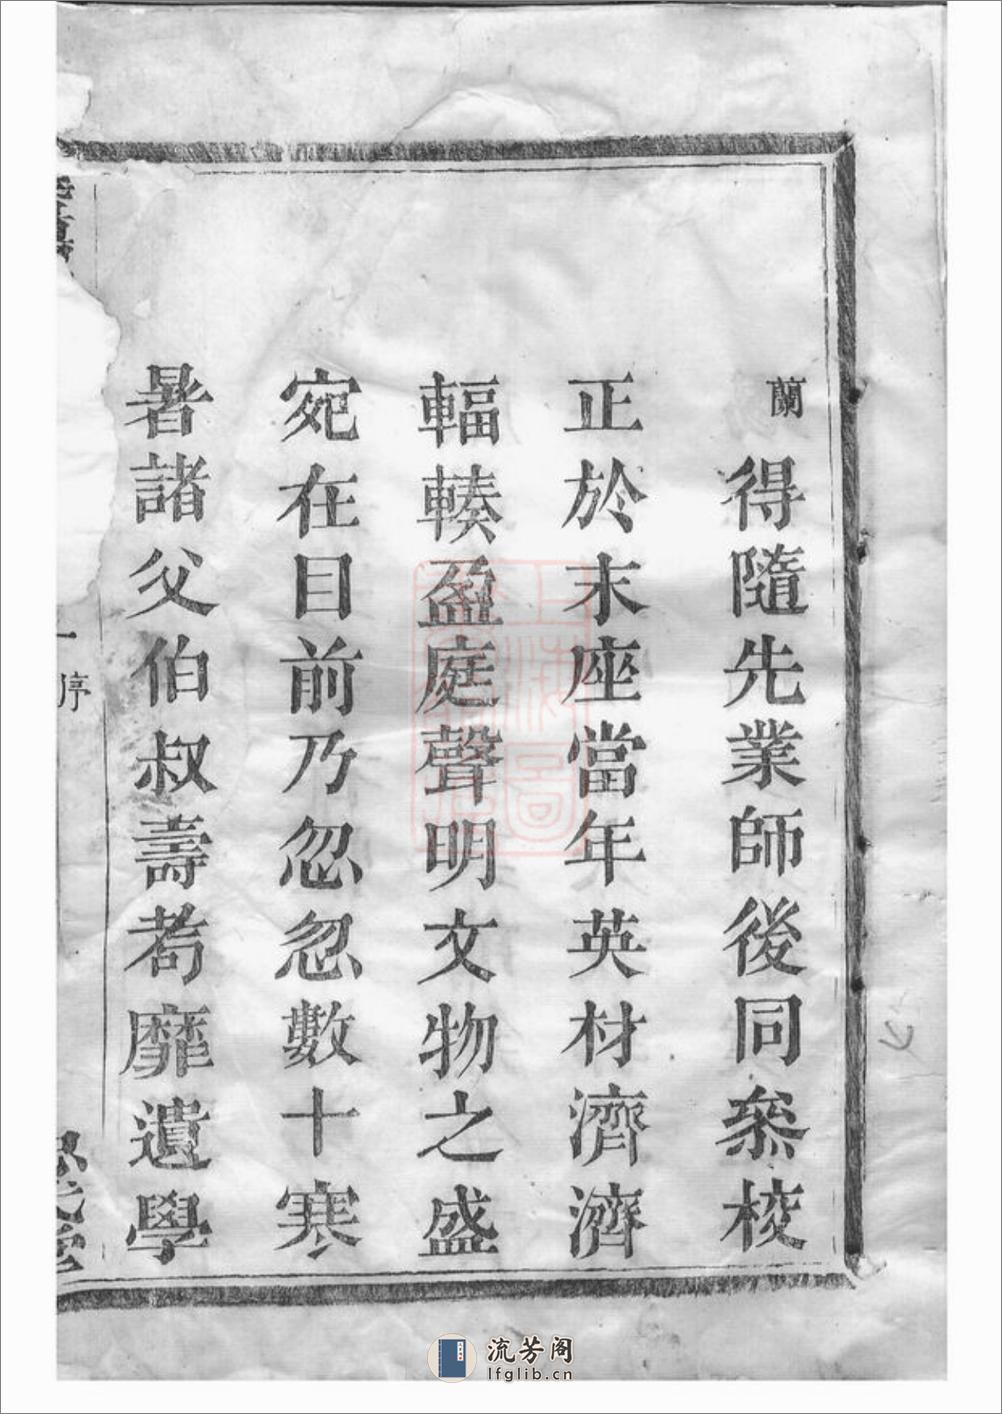 蘭得隨先業師後同叅校
正於末座當年英材濟濟
輻輳盈庭聲明文物之盛
宛在目前乃忽忽數十寒
暑諸父伯叔壽耇靡遺學
一序
流芳阁
lfglib.cn